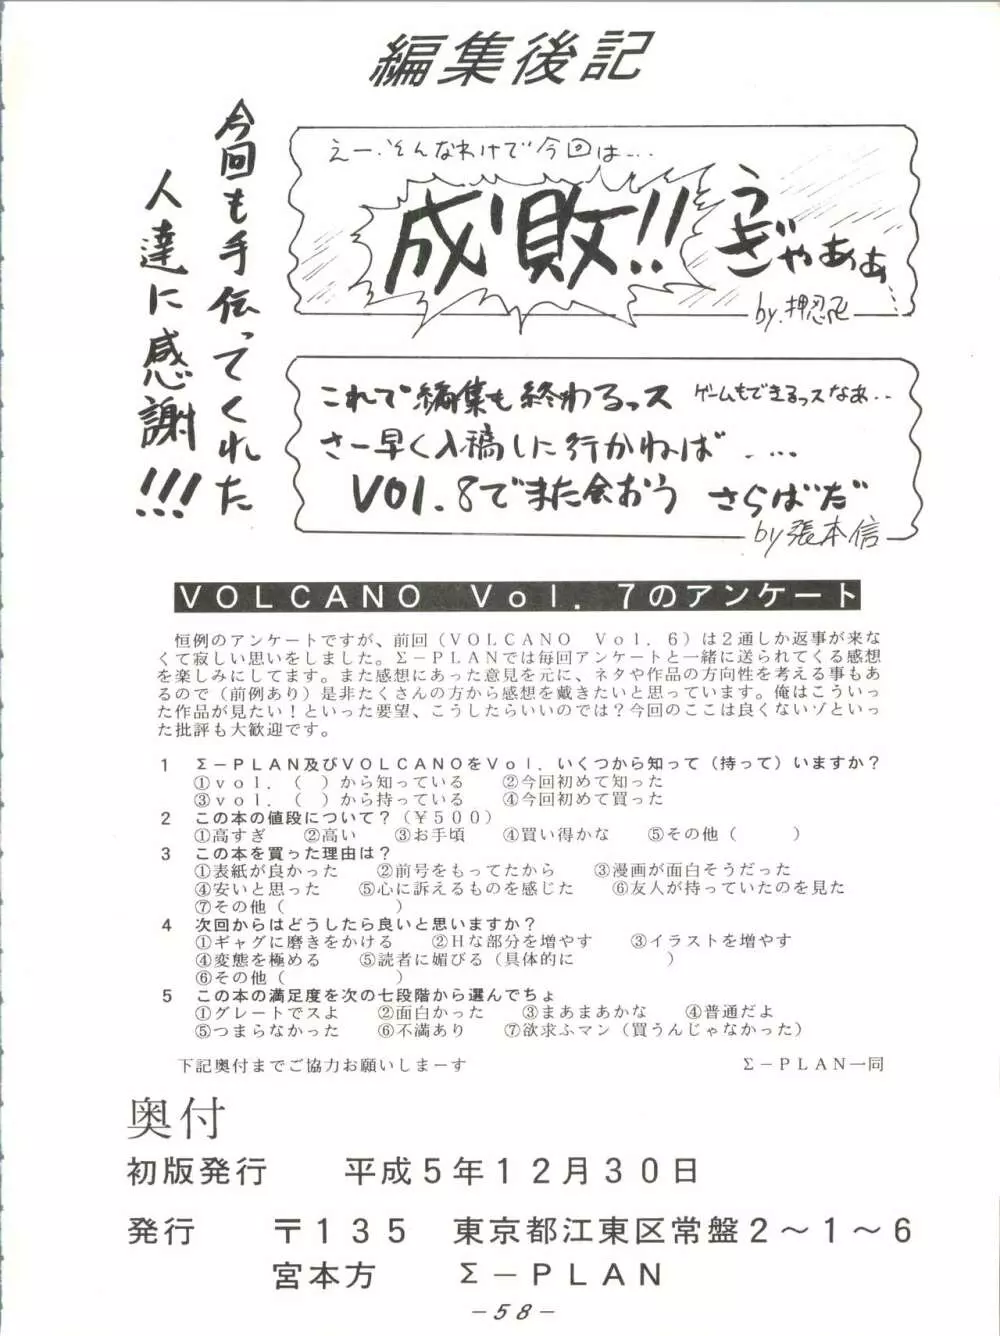 編集後記
今回も手伝ってくれた
人達に感謝!!!
えー、そんなわけで今回は…
成敗!!
うぎゃあぁ…
by.押忍
これで編集も終わるっス ゲームもできるっスなあ‥
さー早く入稿しに行かねば ‥‥
VOl.8でまた会おう さらばだ
by 張本信
VOLCANO Vol.7のアンケート
恒例のアンケートですが、前回(VOLCANO Vol.6)は2通しか返事が来な
くて寂しい思いをしました。Σ-PLANでは毎回アンケートと一緒に送られてくる感想
を楽しみにしてます。また感想にあった意見を元に、ネタや作品の方向性を考える事もあ
るので(前例あり)是非たくさんの方から感想を戴きたいと思っています。俺はこういっ
た作品が見たい!といった要望、こうしたらいいのでは?今回のここは良くないゾといっ
た批評も大歓迎です。
1 Σ-PLAN及びVOLCANOをVol.いくつから知って(持って)いますか?
①vol.( )から知っている ②今回初めて知った
③vol.( )から持っている ④今回初めて買った
2 この本の値段について?(¥500)
①高すぎ ②高い ③お手頃 ④買い得かな ⑤その他( )
3 この本を買った理由は?
①表紙が良かった ②前号をもってたから ③漫画が面白そうだった
④安いと思った ⑤心に訴えるものを感じた ⑥友人が持っていたのを見た
⑦その他( )
4 次回からはどうしたら良いと思いますか?
①ギャグに磨きをかける ②Hな部分を増やす ③イラストを増やす
④変態を極める ⑤読者に媚びる(具体的に )
⑥その他( )
5 この本の満足度を次の七段階から選んでちょ
①グレートでスよ ②面白かった ③まあまあかな ④普通だよ
⑤つまらなかった ⑥不満あり ⑦欲求ふマン(買うんじゃなかった)
下記奥付までご協力お願いしまーす Σ-PLAN一同
奥付
初版発行 平成5年12月30日
発行 〒135 東京都江東区常盤2~1~6
宮本方 Σ-PLAN
-58-